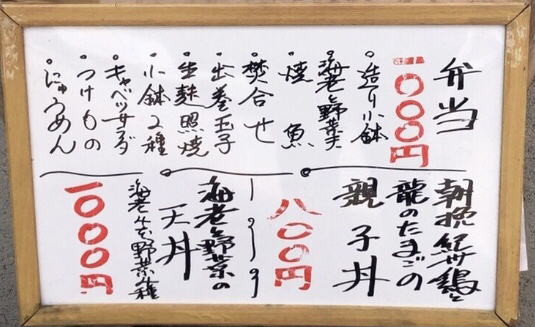 弁当
一〇〇〇円
・造り小鉢
・海老と野菜天
・焼魚
・焚合せ
・出巻玉子
・生麩照焼
・小鉢2種
・キャベツサラダ
・つけもの
・にゅうめん
朝挽紀州鶏と
龍のたまごの
親子丼
八〇〇円
海老と野菜の
天丼
海老 野菜 種
一〇〇〇円